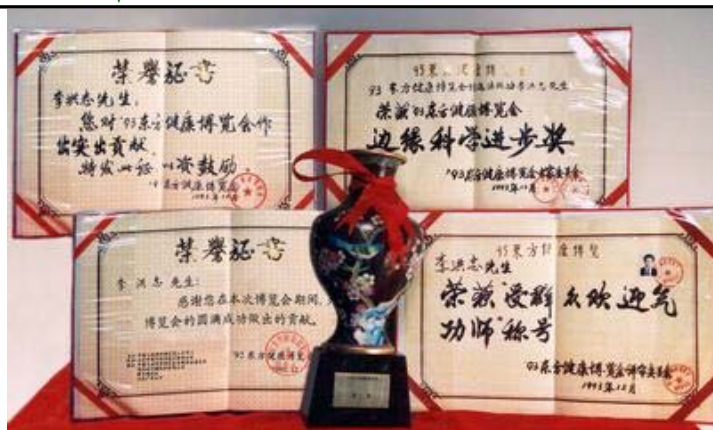 荣誉证书
李洪志先生：
您对'93东方健康博览会作
出突出贡献，
特发此证 以资鼓励。
东方健康博览会
93东方健康博览会
李洪志先生
荣获'93东方健康博览会
边缘科学进步奖
'93东方健康博览会
1993年12月
荣誉证书
李洪志先生：
感谢您在本次博览会期间，
博览会的圆满成功做出的贡献。
东方健康博览
93东方健康博览
李洪志先生
荣获“受群众欢迎气
功师”称号
93东方健康博览会评审委员会
1993年12月